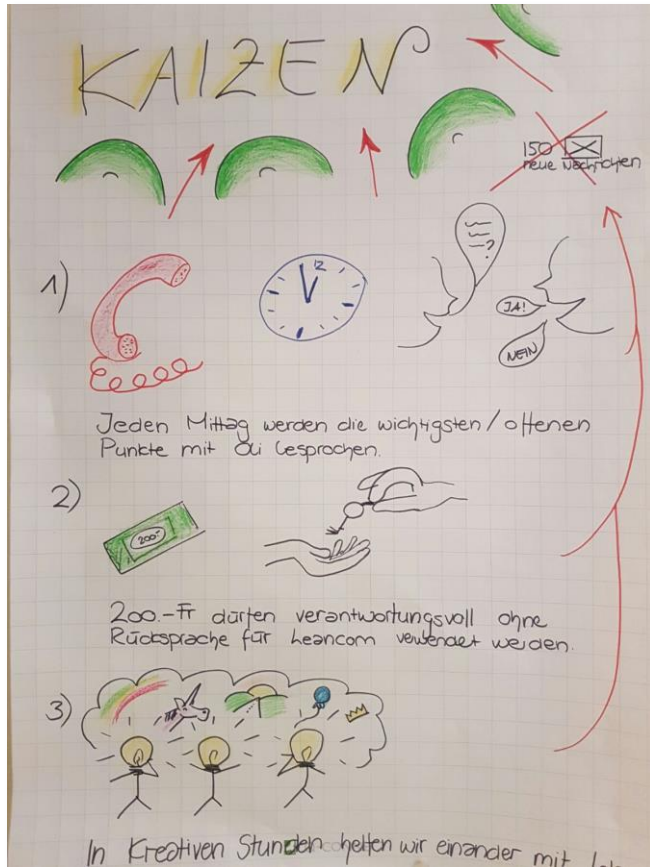 KAIZEN
150
neue Nachrichten
1)
12
?
JA!
NEIN
Jeden Mittag werden die wichtigsten/offenen
Punkte mit Oli besprochen.
2)
200.-
200.-Fr dürfen verantwortungsvoll ohne
Rücksprache für Leancom verwendet werden.
3)
In Kreativen Stunden helfen wir einander mit